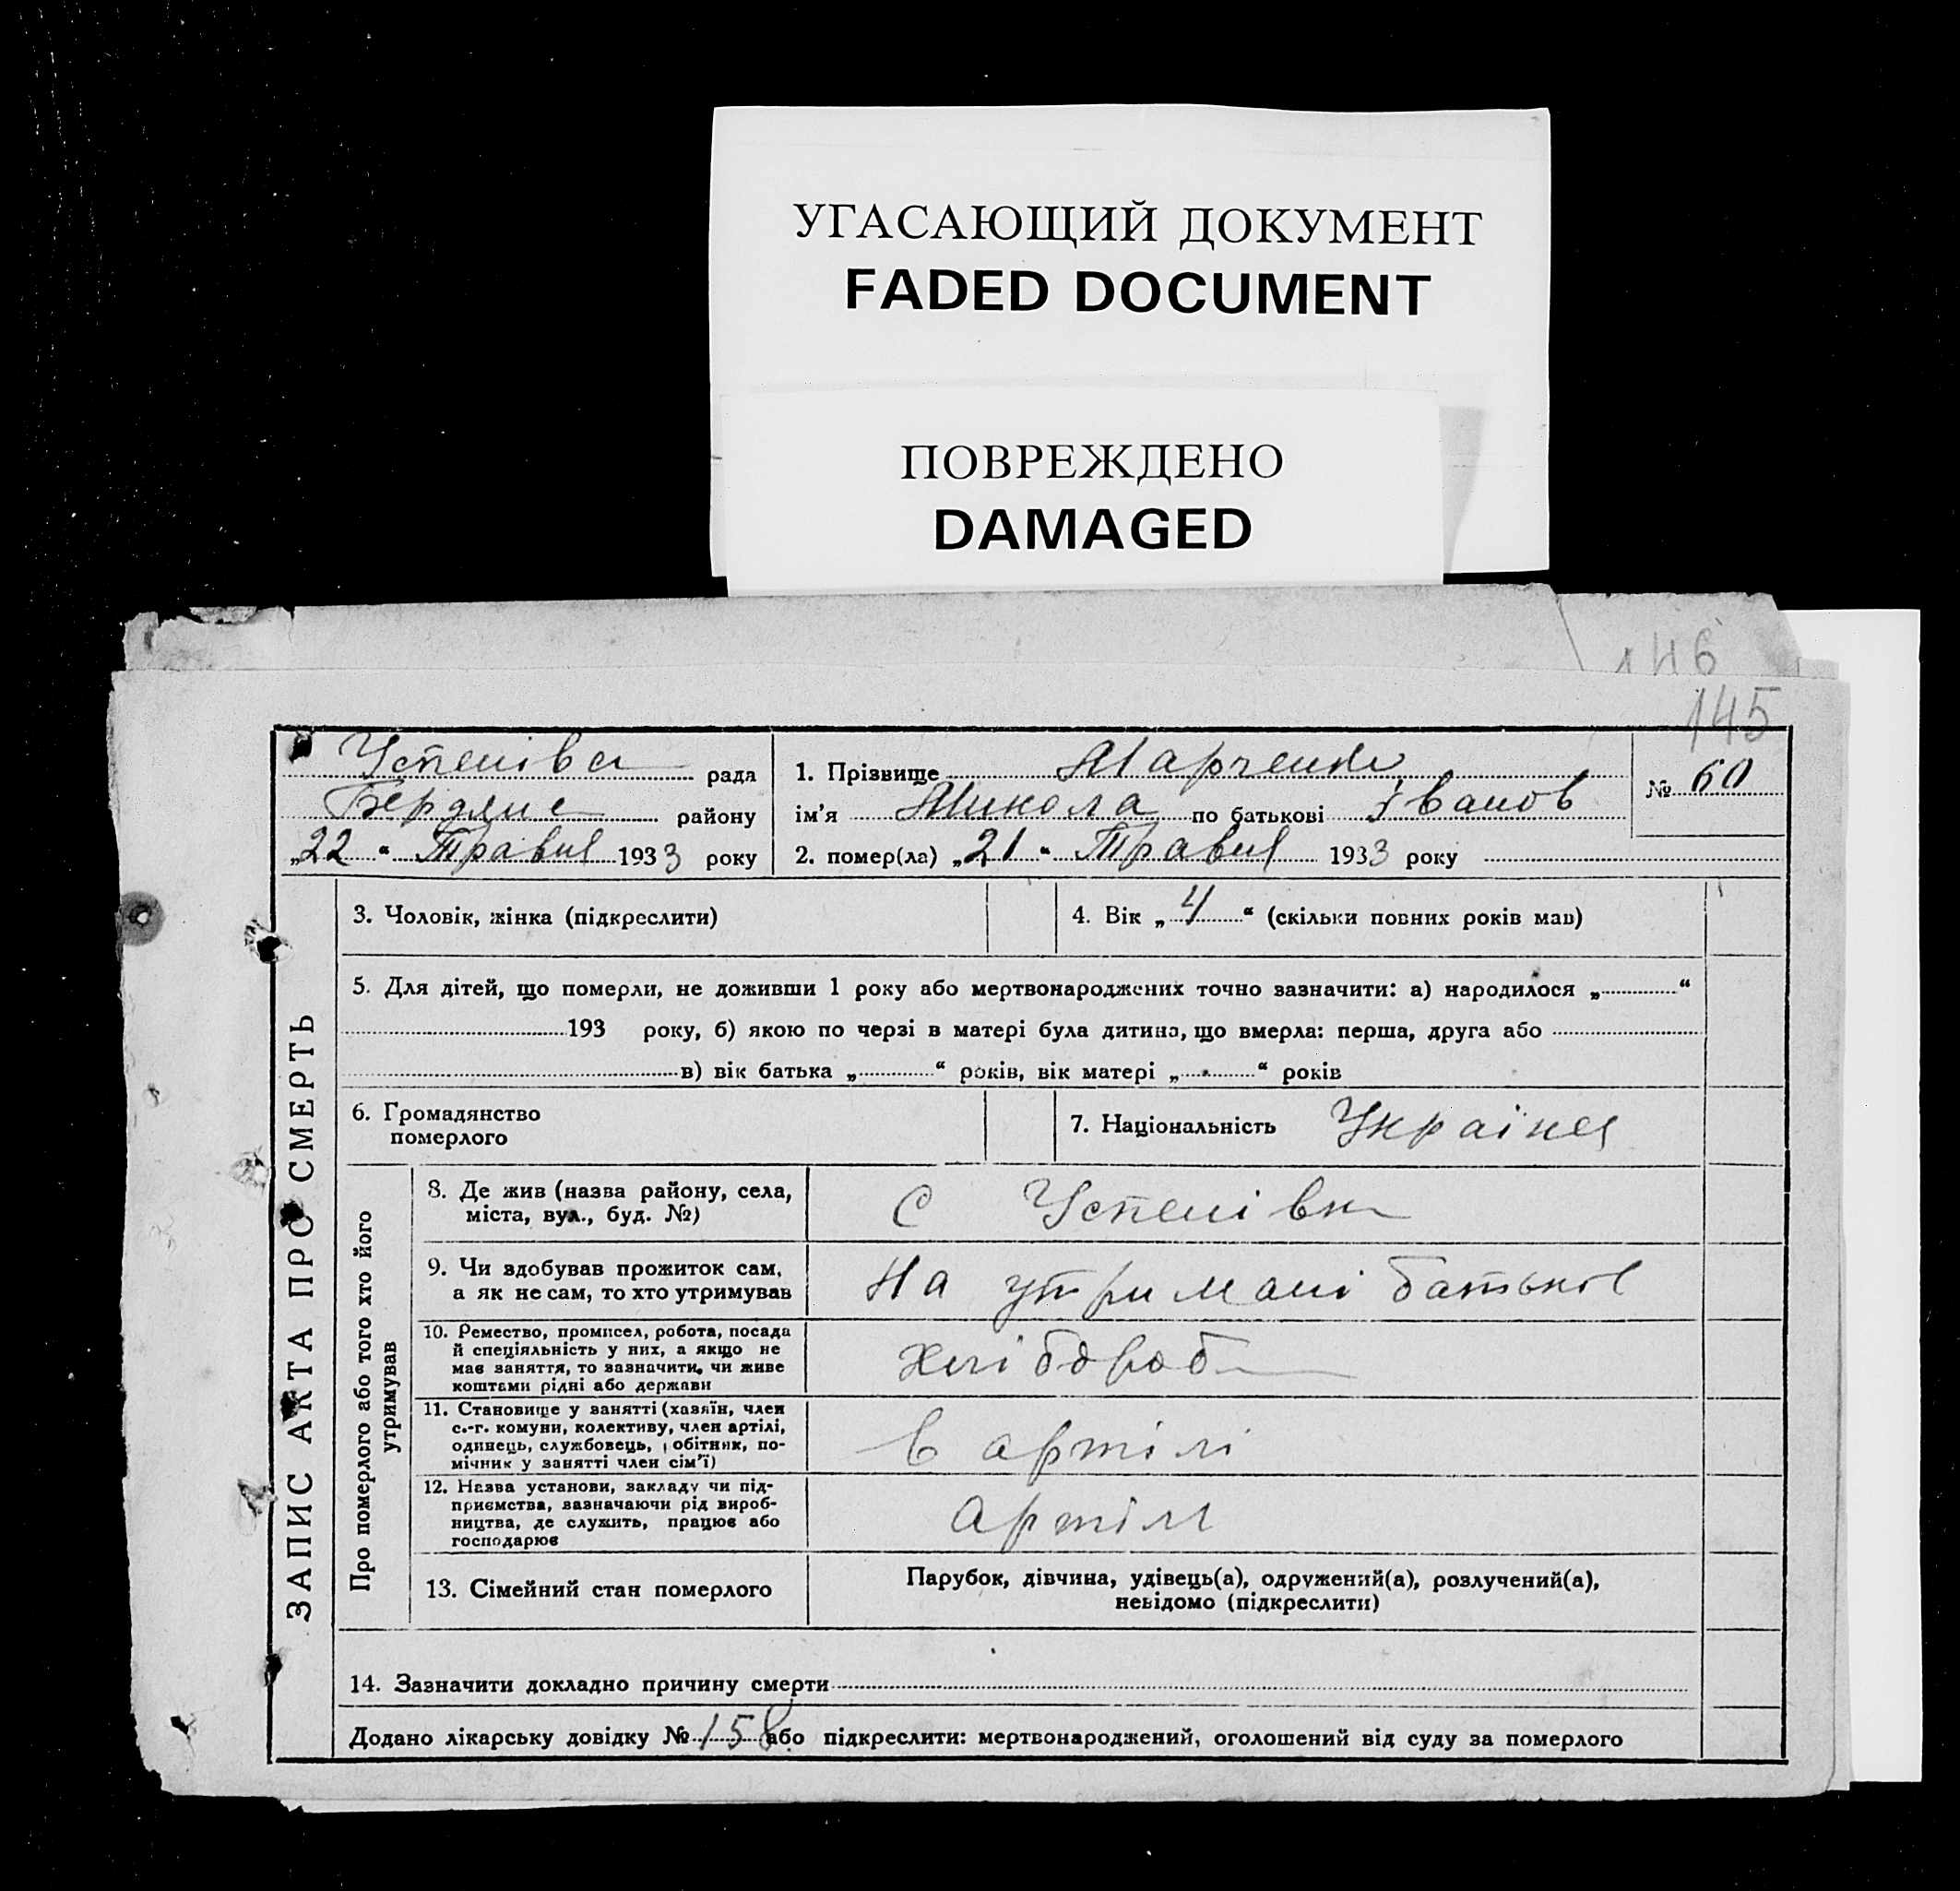 УГАСАЮЩИЙ ДОКУМЕНТ
FADED DOCUMENT
ПОВРЕЖДЕНО
DAMAGED
146
145
Успенівса рада
Бердянс району
„22“ Травня 1933 року
1. Прізвище Марченко
ім'я Микола по батькові Іванов
№ 60
2. помер(ла) „21“ Травня 1933 року
ЗАПИС АКТА ПРО СМЕРТЬ
3. Чоловік, жінка (підкреслити)
4. Вік „4“ (скільки повних років мав)
5. Для дітей, що померли, не доживши 1 року або мертвонароджених точно зазначити: а) народилося „ “
193 року, б) якою по черзі в матері була дитина, що вмерла: перша, друга або
в) вік батька „ “ років, вік матері „ “ років
6. Громадянство
померлого
7. Національність Українец
Про померлого або того хто його
утримував
8. Де жив (назва району, села,
міста, вул., буд. №)
с Успенівка
9. Чи здобував прожиток сам,
а як не сам, то хто утримував
На утримані батьков
10. Ремество, промисел, робота, посада
й спеціяльність у них, а якщо не
має заняття, то зазначити, чи живе
коштами рідні або держави
Хлібороб
11. Становище у занятті (хазяїн, член
с.-г. комуни, колективу, член артілі,
одинець, службовець, обітник, по-
мічник у занятті член сім'ї)
в артілі
12. Назва установи, закладу чи під-
приємства, зазначаючи рід вироб-
ництва, де служить, працює або
господарює
Артіл
13. Сімейний стан померлого
Парубок, дівчина, удівець(а), одружений(а), розлучений(а),
невідомо (підкреслити)
14. Зазначити докладно причину смерти
Додано лікарську довідку № 158 або підкреслити: мертвонароджений, оголошений від суду за померлого